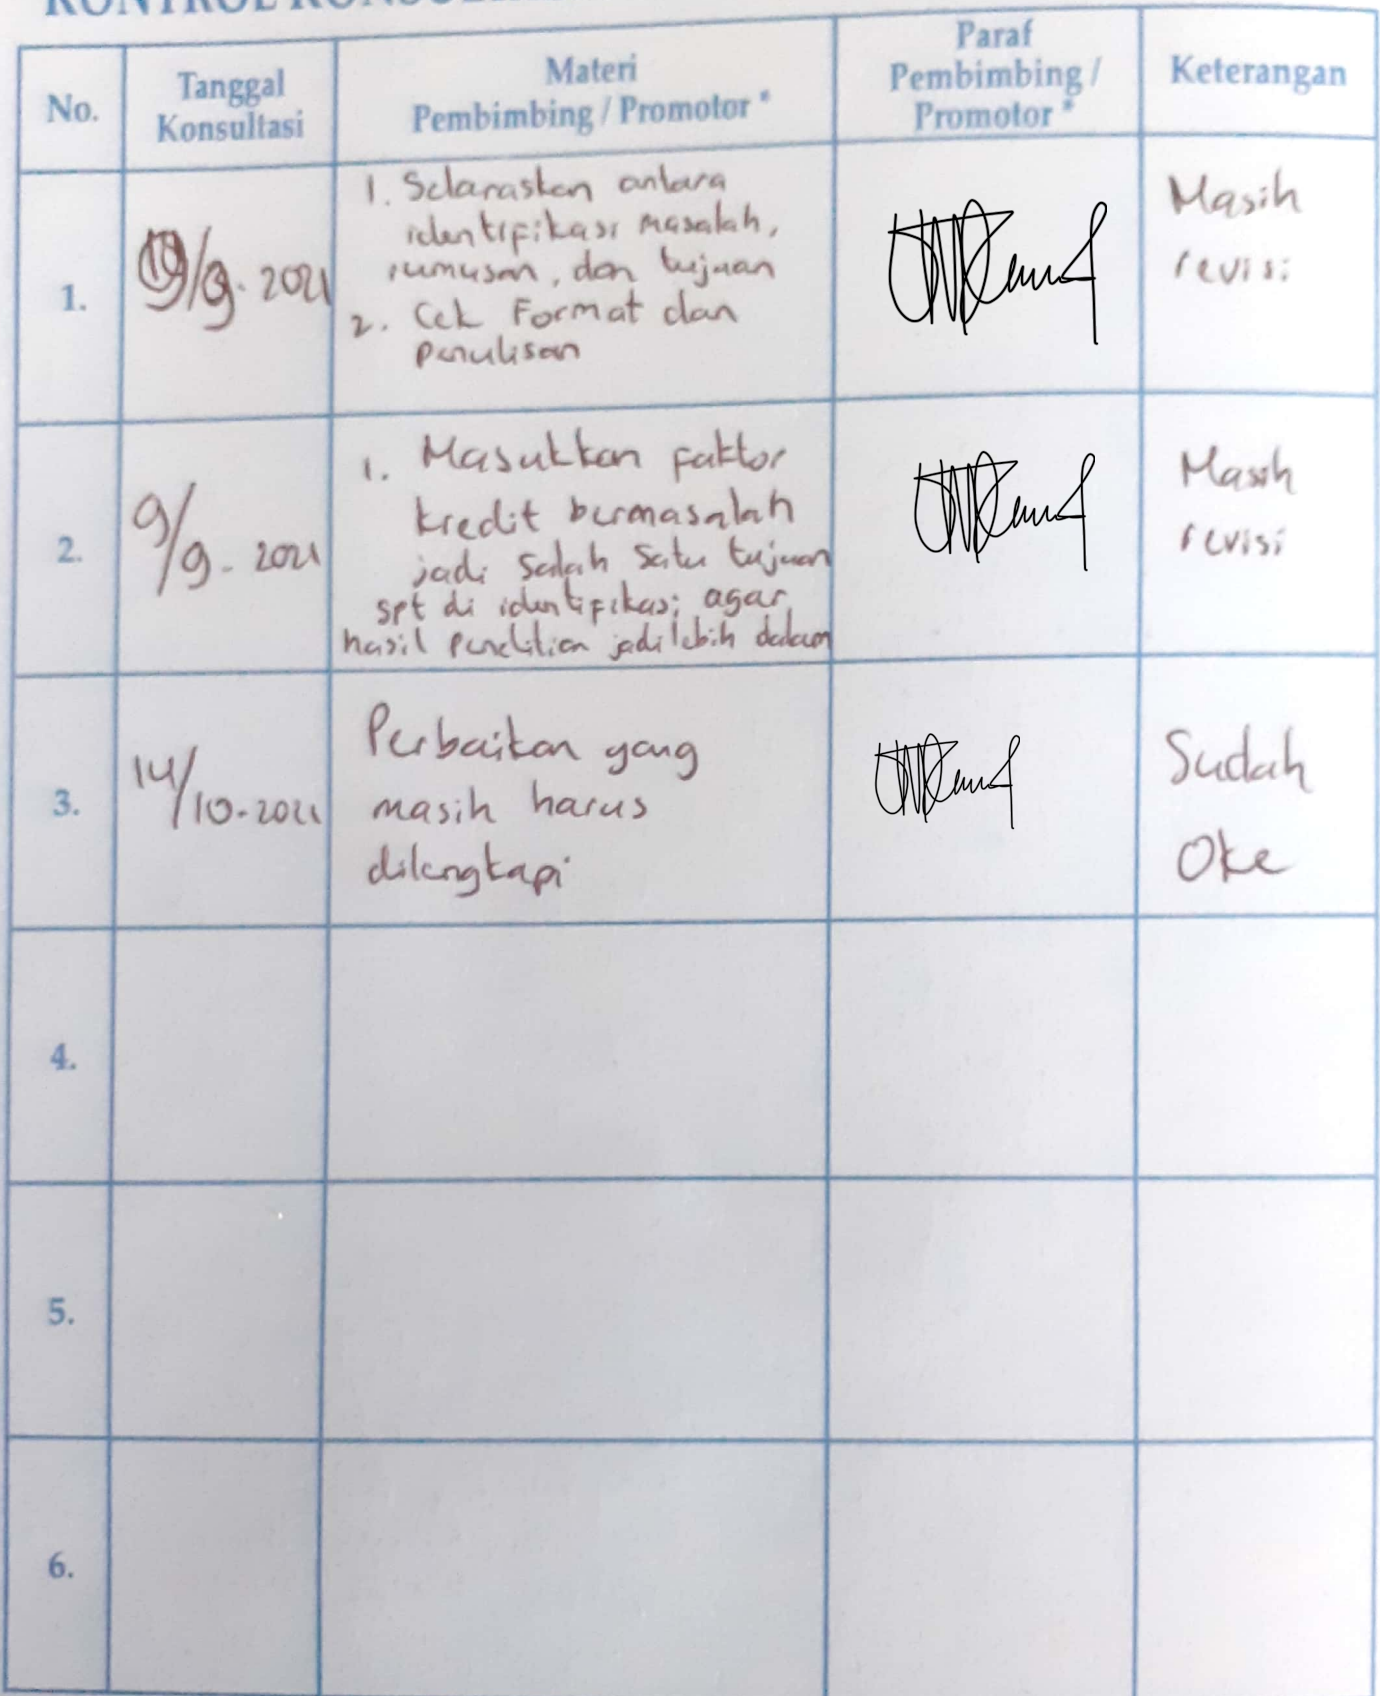 No.
Tanggal
Konsultasi
Materi
Pembimbing / Promotor *
Paraf
Pembimbing /
Promotor *
Keterangan
1.
/9. 2021
1. Selaraskan antara
identifikasi masalah,
rumusan, dan tujuan
2. Cek Format dan
penulisan
Masih
revisi
2.
9/9. 2021
1. Masukkan faktor
kredit bermasalah
jadi salah satu tujuan
spt di identifikasi agar
hasil penelitian jadi lebih dalam
Masih
revisi
3.
14/10.2021
Perbaikan yang
masih harus
dilengkapi
Sudah
Oke
4.
5.
6.